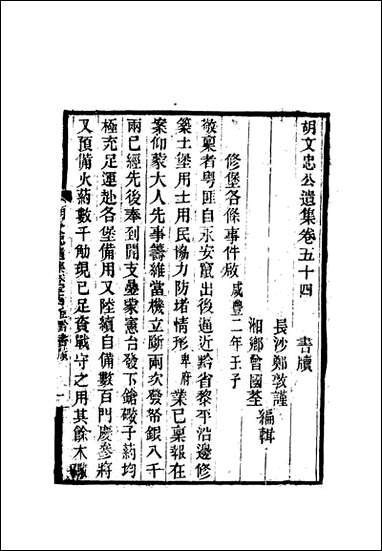 胡文忠公遺集卷五十四 書牘
長沙鄭敦謹
湘鄉曾國荃 編輯
修堡各條事件啟 咸豐二年壬子
敬稟者粵匪自永安竄出後逼近黔省黎平沿邊修
築土堡用士用民協力防堵情形卑府業已稟報在
案仰蒙大人先事籌維當機立斷兩次發帑銀八千
兩已經先後奉到開支壘蒙憲台發下鎗礮子藥均
極充足運赴各堡備用又陸續自備數百門慶參將
又預備火藥數千觔現已足資戰守之用其餘木